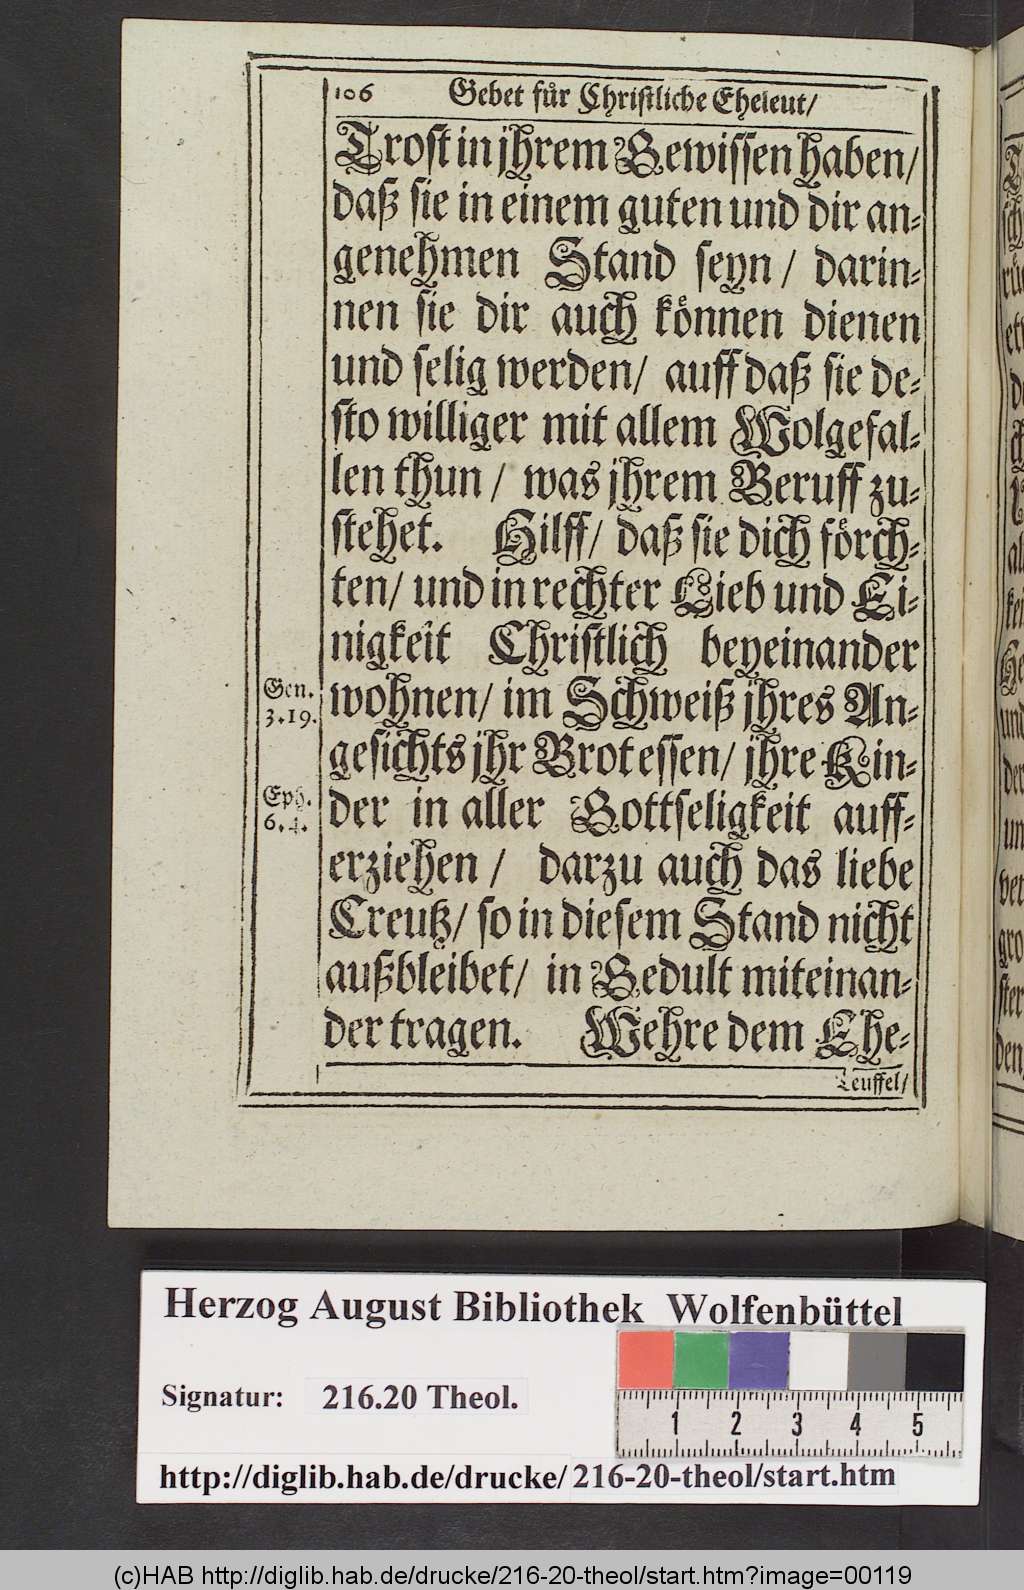 106 Gebet fuͤr Christliche Eheleut/
Trost in jhrem Gewissen haben/
daß sie in einem guten und dir an-
genehmen Stand seyn / darin-
nen sie dir auch koͤnnen dienen
und selig werden/ auff daß sie de-
sto williger mit allem Wolgefal-
len thun / was jhrem Beruff zu-
stehet. Hilff/ daß sie dich foͤrch-
ten/ und in rechter Lieb und Ei-
nigkeit Christlich beyeinander
Gen. wohnen/ im Schweiß jhres An-
3.19.
gesichts jhr Brot essen/ jhre Kin-
Eph. der in aller Gottseligkeit auff-
6.4.
erziehen / darzu auch das liebe
Creutz/ so in diesem Stand nicht
außbleibet/ in Gedult miteinan-
der tragen. Wehre dem Ehe-
Teuffel/
Herzog August Bibliothek Wolfenbüttel
Signatur: 216.20 Theol.
1 2 3 4 5
http://diglib.hab.de/drucke/ 216-20-theol/start.htm
(c)HAB http://diglib.hab.de/drucke/216-20-theol/start.htm?image=00119